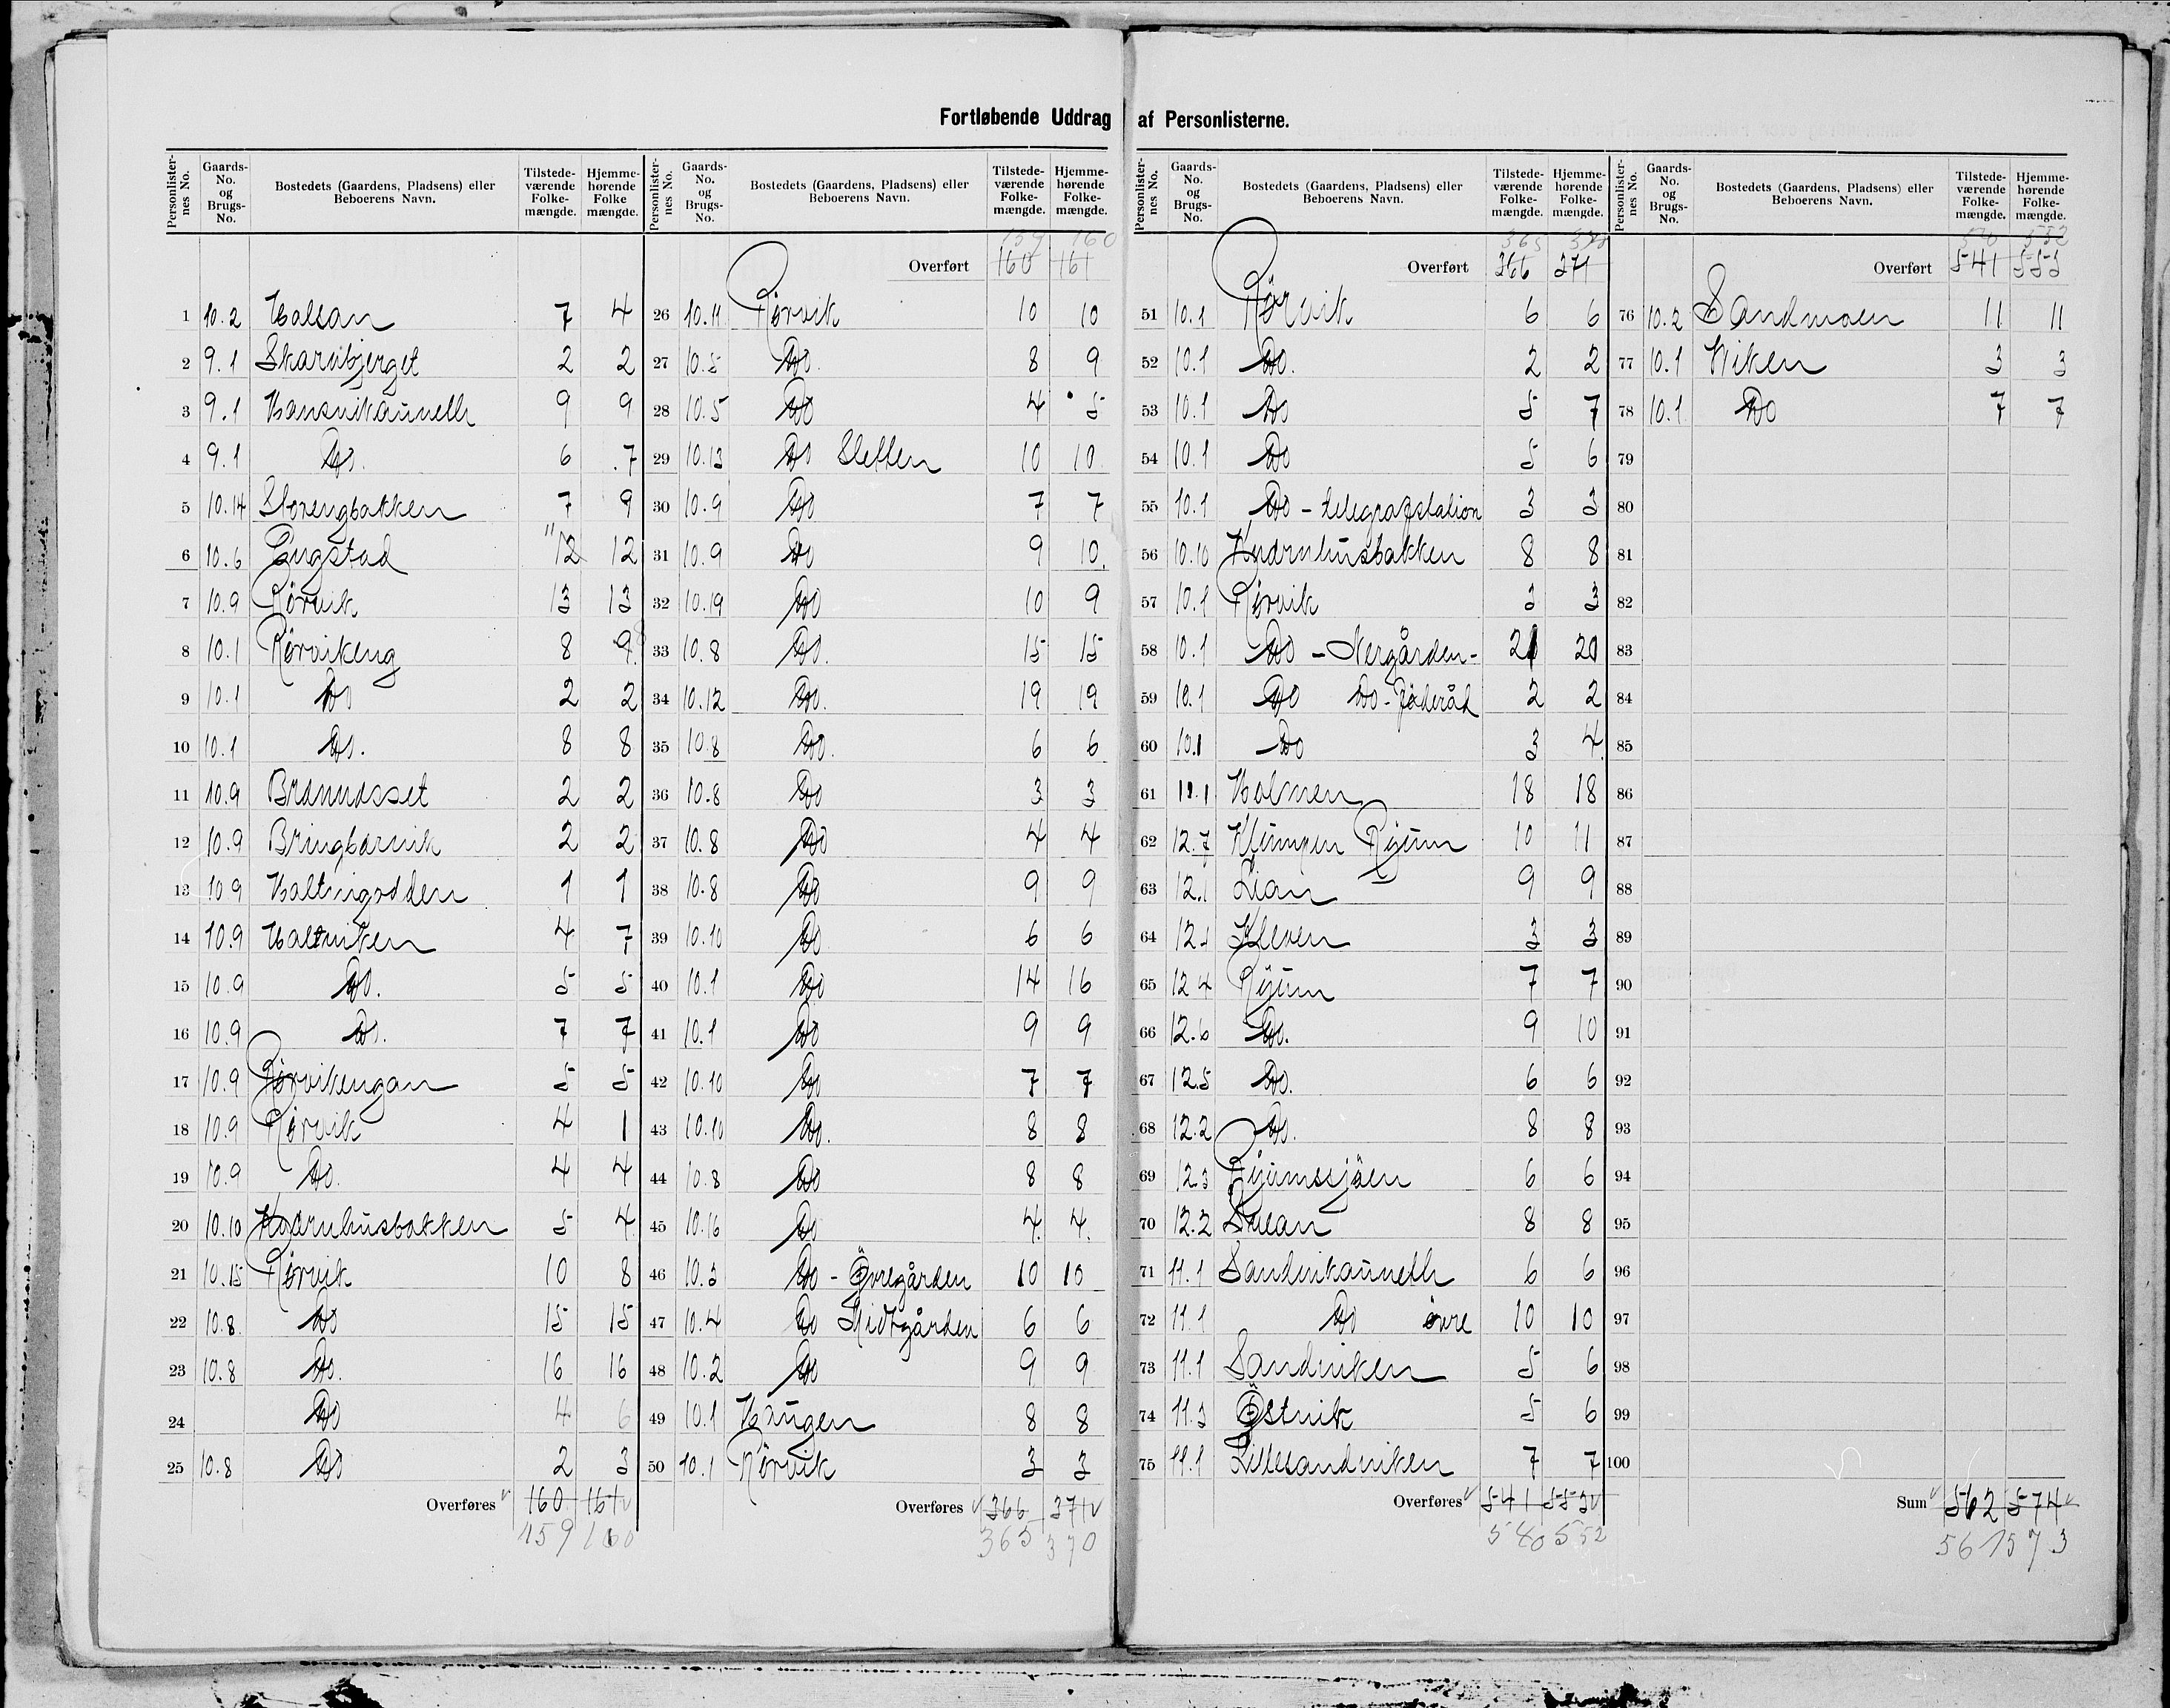 Fortløbende Uddrag af Personlisterne.
Personlister-nes No. Gaards-No. og Brugs-No. Bostedets (Gaardens, Pladsens) eller Beboerens Navn. Tilstede-værende Folke-mængde. Hjemme-hørende Folke mængde.
1 10.2 Halsan 7 4
2 9.1 Skarvbjerget 2 2
3 9.1 Hansvikaunelh 9 9
4 9.1 Do. 6 7
5 10.14 Storengbakken 7 9
6 10.6 Engstad 11 12 12
7 10.9 Rørvik 13 13
8 10.1 Rørvikeng 8 9
9 10.1 Do 2 2
10 10.1 Do. 8 8
11 10.9 Brannasset 2 2
12 10.9 Bringbærvik 2 2
13 10 9 Holtingodden 1 1
14 10.9 Holtviken 4 7
15 10.9 Do. 5 5
16 10.9 Do. 7 7
17 10.9 Rørvikengan 5 5
18 10.9 Rørvik 4 1
19 10.9 Do. 4 4
20 10.10 Kværnhusbakken 5 4
21 10.15 Rørvik 10 8
22 10.8 Do 15 15
23 10.8 Do. 16 16
24 Do 4 6
25 10.8 Do 2 3
Overføres 160 161
159 160
Personlister-nes No. Gaards-No. og Brugs-No. Bostedets (Gaardens, Pladsens) eller Beboerens Navn. Tilstede-værende Folke-mængde. Hjemme-hørende Folke-mængde.
159 160
Overført 160 161
26 10.11 Rørvik 10 10
27 10.5 Do. 8 9
28 10.5 Do 4 5
29 10.13 Do Sletten 10 10
30 10.9 Do 7 7
31 10.9 Do 9 10.
32 10.19 Do 10 9
33 10.8 Do. 15 15
34 10.12 Do. 19 19
35 10.8 Do. 6 6
36 10.8 Do 3 3
37 10.8 Do 4 4
38 10.8 Do 9 9
39 10.10 Do 6 6
40 10.1 Do 14 16
41 10.1 Do 9 9
42 10.10 Do 7 7
43 10.10 Do. 8 8
44 10.8 Do 8 8
45 10.16 Do 4. 4.
46 10.3 Do - Övregården 10 10
47 10.4 Do Midtgården 6 6
48 10.2 Do 9 9
49 10.1 Haugen 8 8
50 10.1 Rørvik 3 3
Overføres 366 371
365 370
Personlister-nes No. Gaards-No. og Brugs-No. Bostedets (Gaardens, Pladsens) eller Beboerens Navn. Tilstede-værende Folke-mængde. Hjemme-hørende Folke-mængde.
Overført 366 371
51 10.1 Rørvik 6 6
52 10.1 Do. 2 2
53 10.1 Do 5 7
54 10.1 Do 5 6
55 10.1 Do - telegrafstation 3 3
56 10.10 Kværnhusbakken 8 8
57 10.1 Rørvik 3 3
58 10.1 Do - Nergården - 21 20
59 10.1 Do Do - föderåd 2 2
60 10.1 Do 3 4
61 11.1 Holmen 18 18
62 12.7 Klungen Ryum 10 11
63 12.1 Lian 9 9
64 12.1 Kleven 3 3
65 12 4 Ryum 7 7
66 12.6 Do. 9 10
67 12.5 Do. 6 6
68 12.2 Do. 8 8
69 12.3 Ryumssjöen 6 6
70 12.2 Suean 8 8
71 11.1 Sandvikaunelh 6 6
72 11.1 Do övre 10 10
73 11.1 Sandviken 5 6
74 11.3 Östvik 5 6
75 11.1 Lillesandviken 7 7
Overføres 541 553
540 552
Personlister-nes No. Gaards-No. og Brugs-No. Bostedets (Gaardens, Pladsens) eller Beboerens Navn. Tilstede-værende Folke-mængde. Hjemme-hørende Folke-mængde.
Overført 541 553
76 10.2 Sandmoen 11 11
77 10.1 Viken 3 3
78 10.1 Do 7 7
79
80
81
82
83
84
85
86
87
88
89
90
91
92
93
94
95
96
97
98
99
100
Sum 562 574
561 573